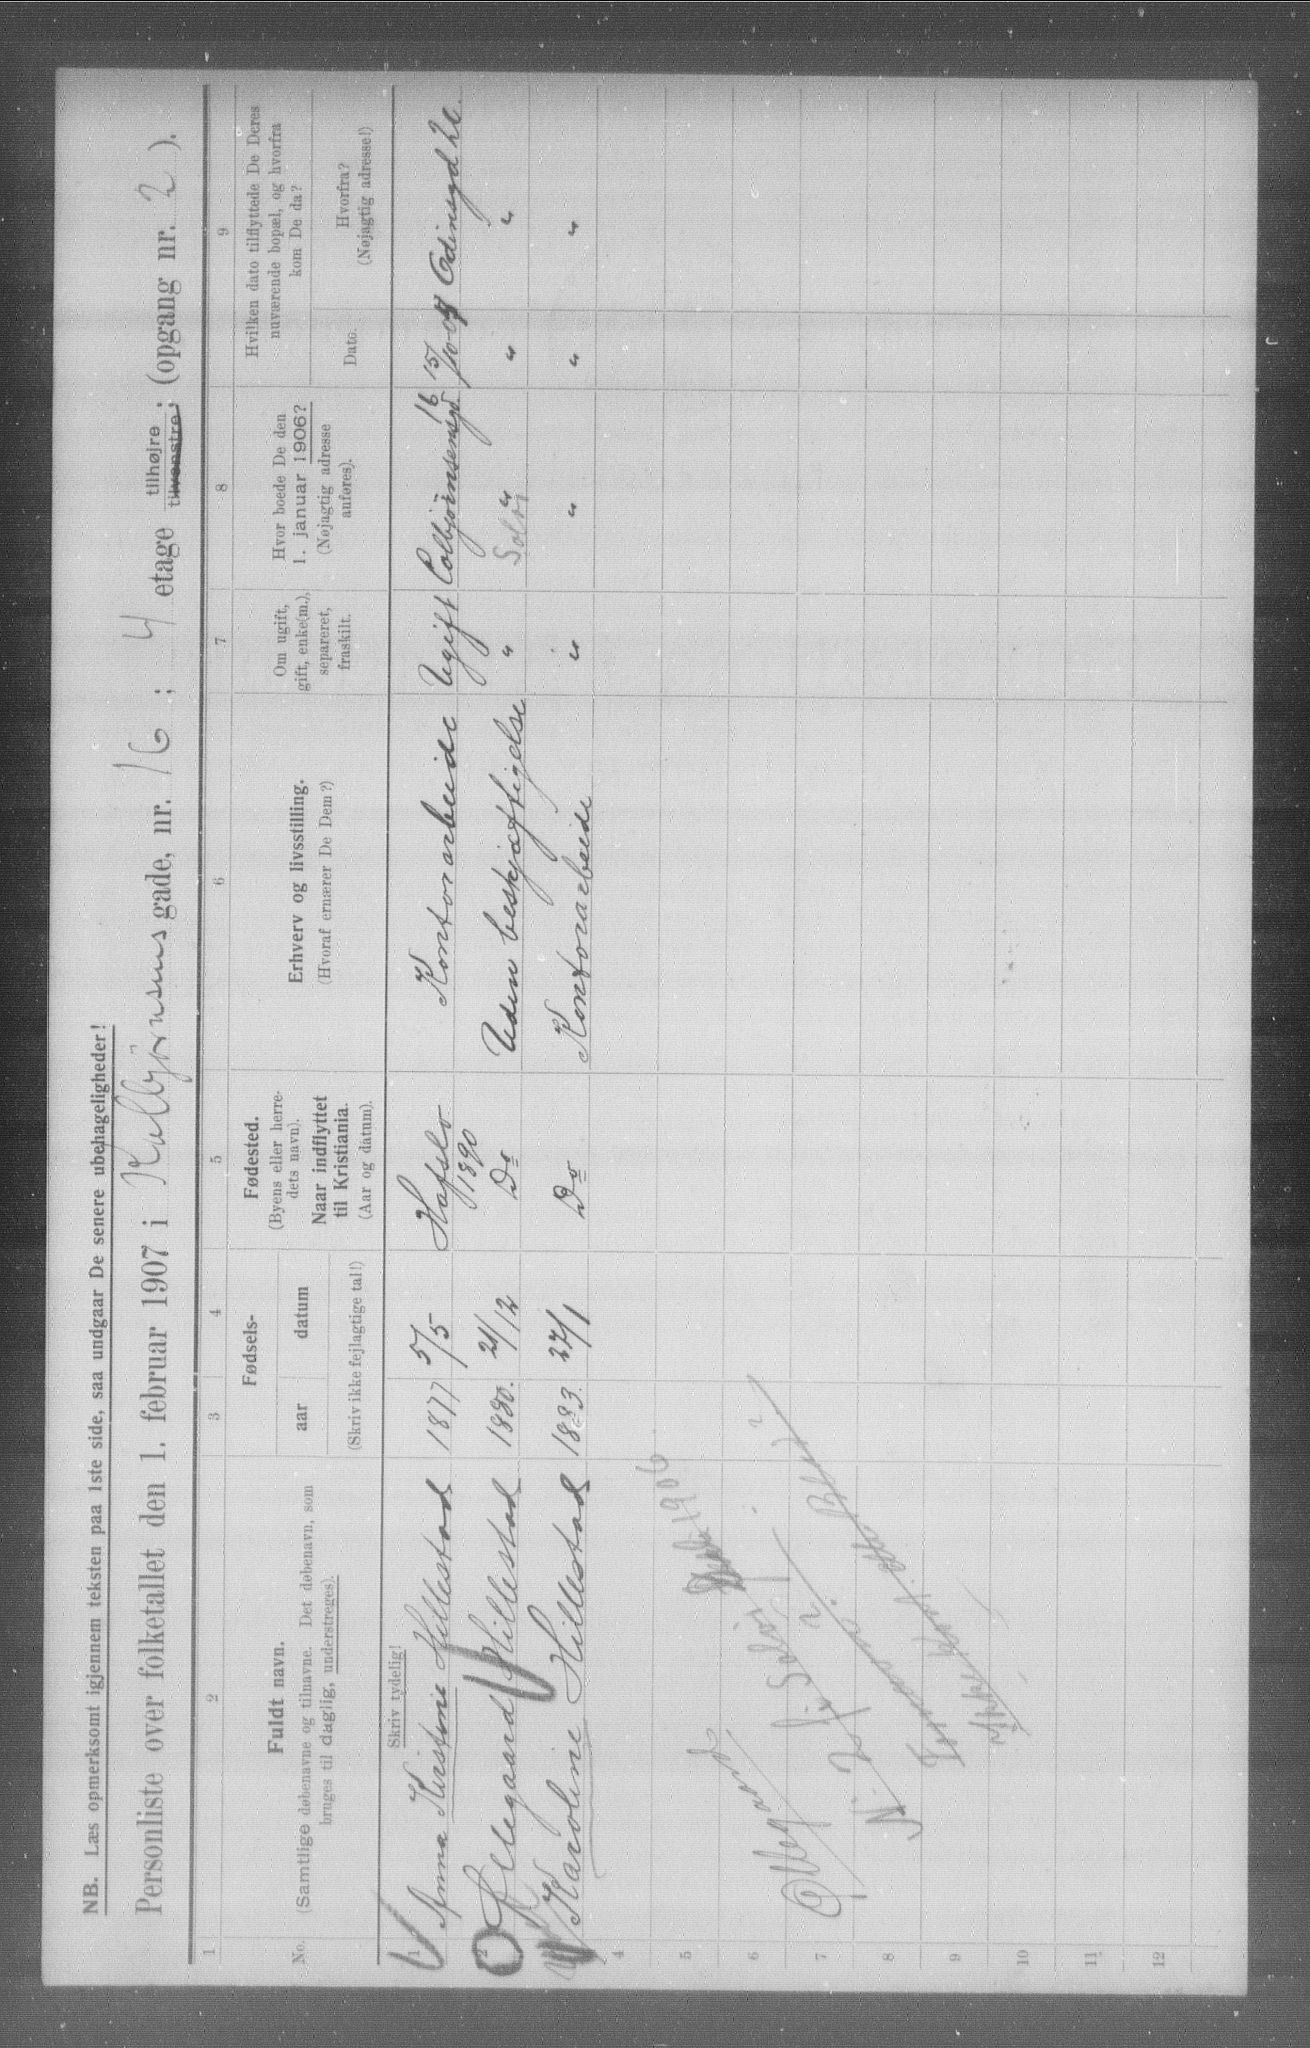 NB. Læs opmerksomt igjennem teksten paa 1ste side, saa undgaar De senere ubehageligheder!
Personliste over folketallet den 1. februar 1907 i Kolbjørnsens gade, nr. 16 ; 4 etage tilhøjre ; tilvenstre ; (opgang nr. 2 ).
1 2 3 4 5 6 7 8 9
No.
Fuldt navn.
(Samtlige døbenavne og tilnavne. Det døbenavn, som
bruges til daglig, understreges).
Skriv tydelig!
Fødsels-
aar datum
(Skriv ikke fejlagtige tal!)
Fødested.
(Byens eller herre-
dets navn).
Naar indflyttet
til Kristiania.
(Aar og datum).
Erhverv og livsstilling.
(Hvoraf ernærer De Dem?)
Om ugift,
gift, enke(m.),
separeret,
fraskilt.
Hvor boede De den
1. januar 1906?
(Nøjagtig adresse
anføres).
Hvilken dato tilflyttede De Deres
nuværende bopæl, og hvorfra
kom De da?
Dato.
Hvorfra?
(Nøjagtig adresse!)
1 Anna Kirstine Hillestad 1877 5/5 Hafslo 1890 Kontorarbeide Ugift Colbjørnsensgd 16 15/10 Odinsgd 20.
2 Ollegaard Hillestad 1880. 21/12 Do Uden beskjæftigelse " " " "
Solør
3 Karoline Hillestad 1883. 27/1 Do Kontorarbeide " " " "
4
5
1906
6
Ollegaard
7
8
9
10
11
12